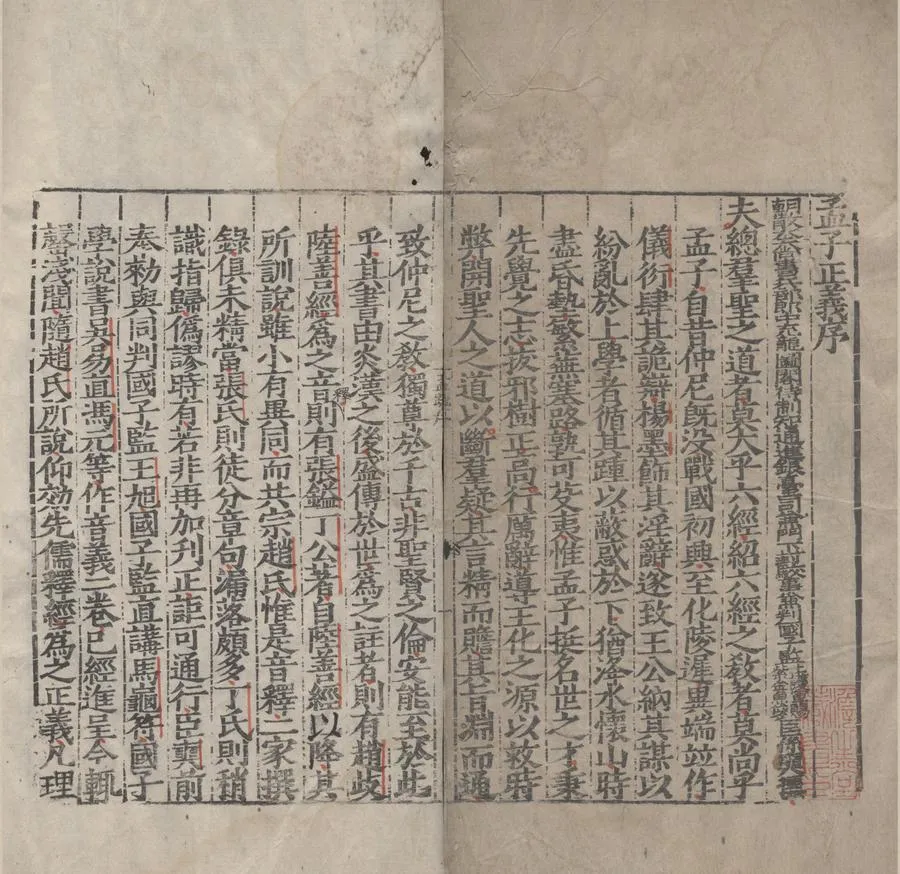 孟子正義序
朝散大夫尚書兵部郎中充龍圖閣待制知通進銀臺司兼門下封駮事兼判國子監 臣孫奭撰
夫總羣聖之道者莫大乎六經紹六經之教者莫尚乎
孟子自昔仲尼既没戰國初興至化陵遲異端並作
儀衍肆其詭辯楊墨飾其淫辭遂致王公納其謀以
紛亂於上學者循其踵以蔽惑於下猶洚水懷山時
盡昏墊繁蕪塞路孰可芟夷惟孟子挺名世之才秉
先覺之志拔邪樹正高行厲辭導王化之源以救時
弊開聖人之道以斷羣疑其言精而贍其旨淵而通
致仲尼之教獨尊於千古非聖賢之倫安能至於此
乎其書由炎漢之後盛傳於世為之註者則有趙歧
陸善經為之音釋則有張鎰丁公著自陸善經以降其
所訓說雖小有異同而共宗趙氏惟是音釋二家撰
錄俱未精當張氏則徒分章句漏落頗多丁氏則稍
識指歸偽謬時有若非再加刊正詎可通行臣奭前
奉勑與同判國子監王旭國子監直講馬龜符國子
學說書吳易直馮元等作音義二卷已經進呈今輒
罄淺聞隨趙氏所說仰効先儒釋經為之正義凡理